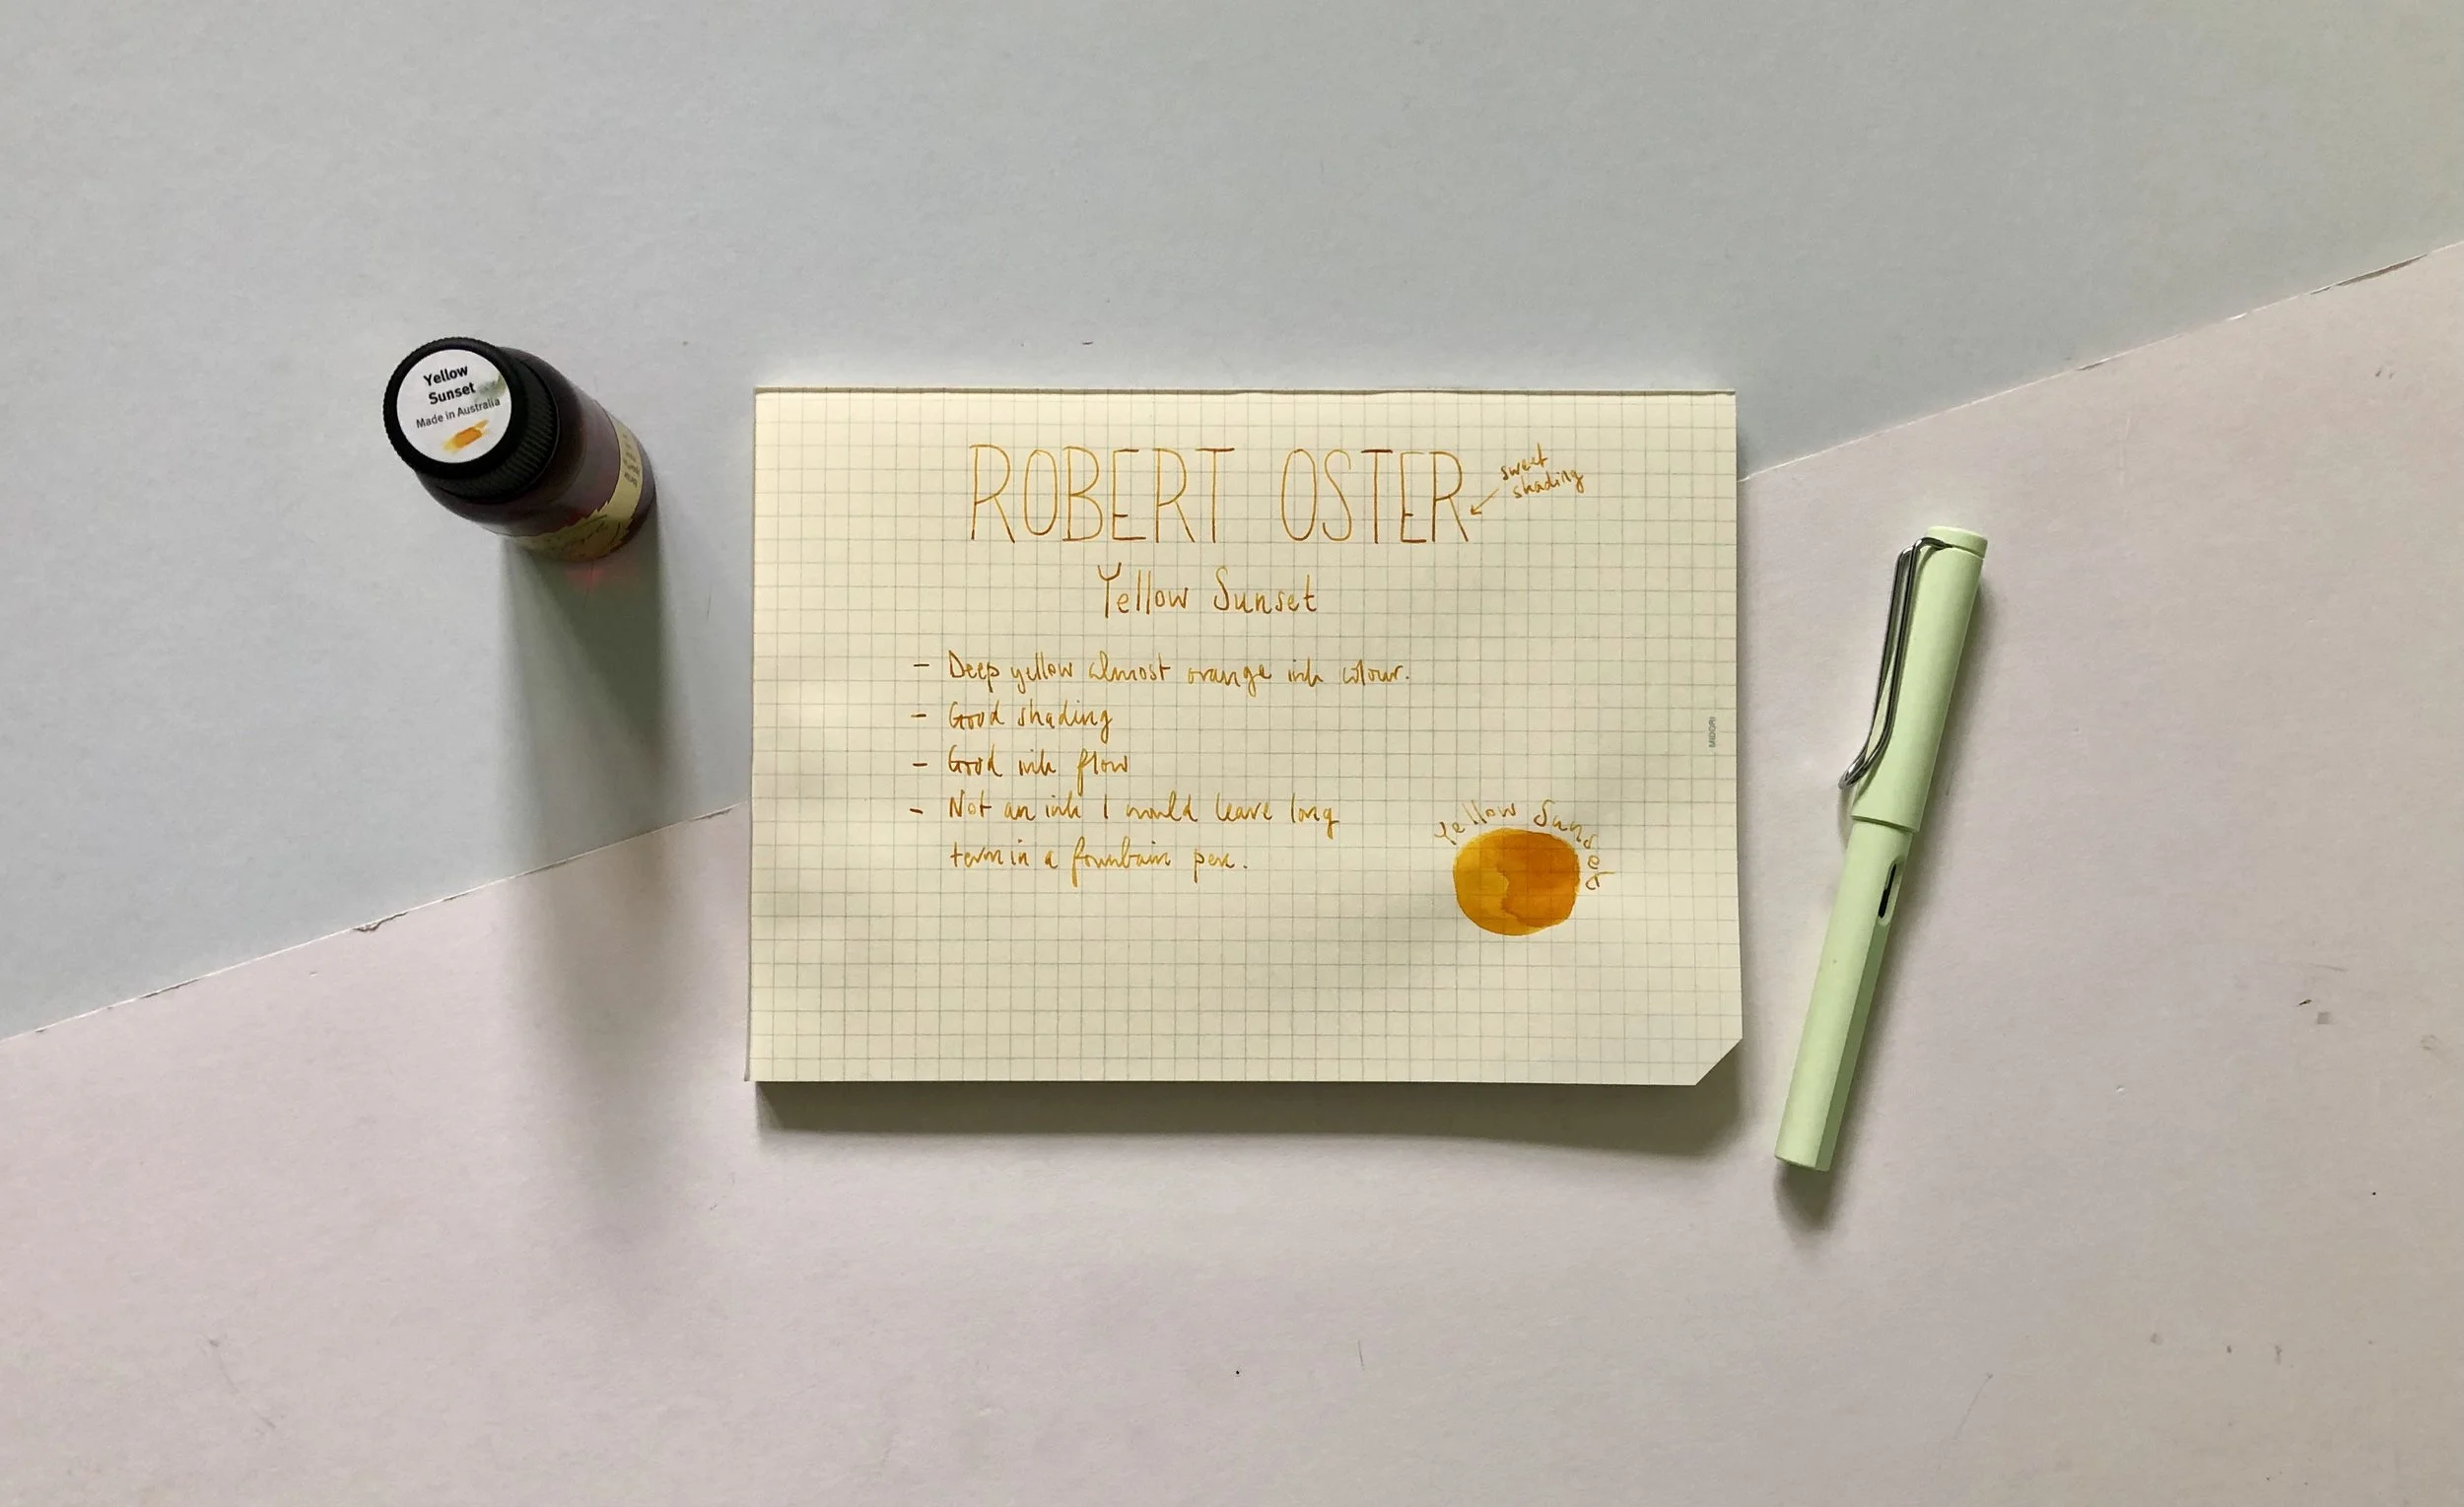 Yellow
Sunset
Made in Australia
ROBERT OSTER
sweet
shading
Yellow Sunset
- Deep yellow almost orange ink colour.
- Good shading
- Good ink flow
- Not an ink I would leave long
term in a fountain pen.
MIDORI
Yellow Sunset